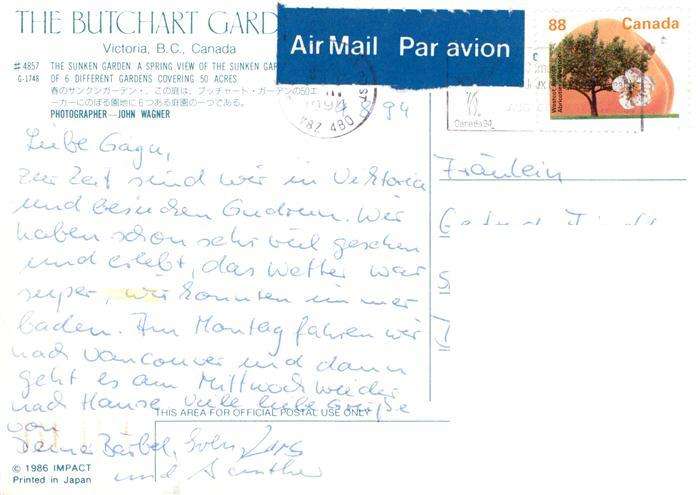 THE BUTCHART GARD
Victoria, B.C., Canada
# 4857 THE SUNKEN GARDEN. A SPRING VIEW OF THE SUNKEN GAR
G-1748 OF 6 DIFFERENT GARDENS COVERING 50 ACRES
春のサンクンガーデン・この庭は、ブッチャート・ガーデンの50エ
ーカーにのぼる園地に6つある庭園の一つである。
PHOTOGRAPHER—JOHN WAGNER
Air Mail Par avion
88 Canada
1994
V8Z 4B0
94
Canada94
Liebe Gagu,
Zur Zeit sind wir in Viktoria
und besuchen Gudrun. Wir
haben schon sehr viel gesehen
und erlebt, das Wetter war
super, wir konnten immer
baden. Am Montag fahren wir
nach Vancouver und dann
geht es am Mittwoch wieder
nach Hause. Viele liebe Grüße
von
Deine Bärbel, Sven, Lars
und Günther
Fräulein
THIS AREA FOR OFFICIAL POSTAL USE ONLY
© 1986 IMPACT
Printed in Japan